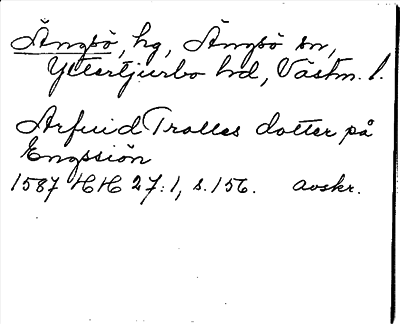 Ängsö, hg, Ängsö sn,
Yttertjurbo hd, Västm. l.
Arfuid Trolles dotter på
Engssiön
1587 HH 27:1, s. 156. avskr.